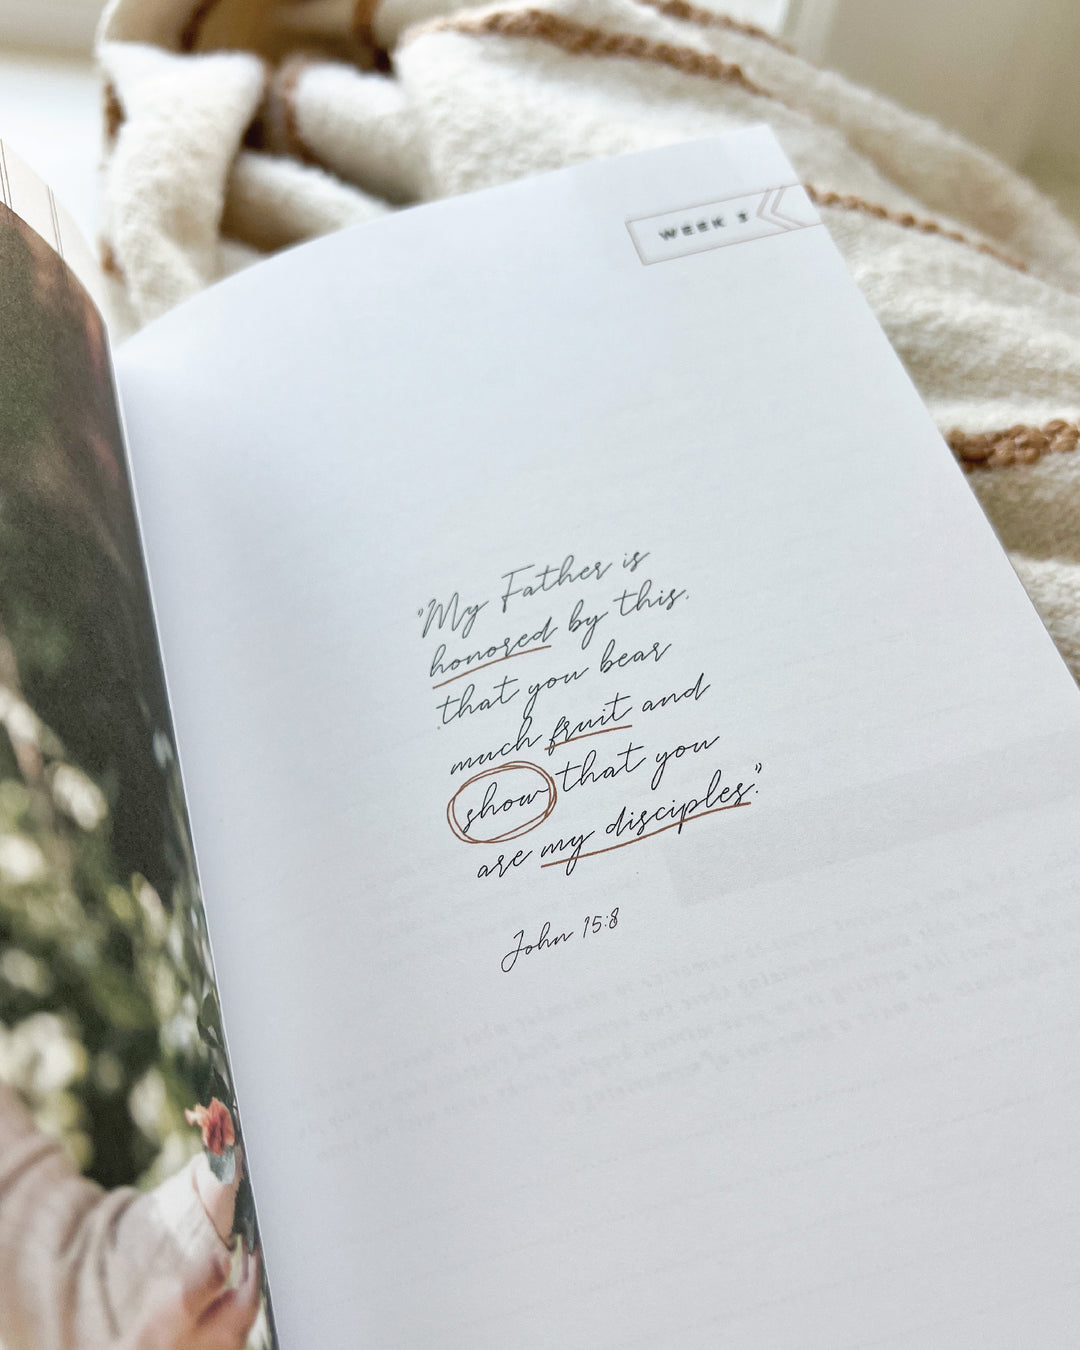 WEEK
"My Father is
honored by this.
that you bear
much fruit and
show that you
are my disciples."
John 15:8